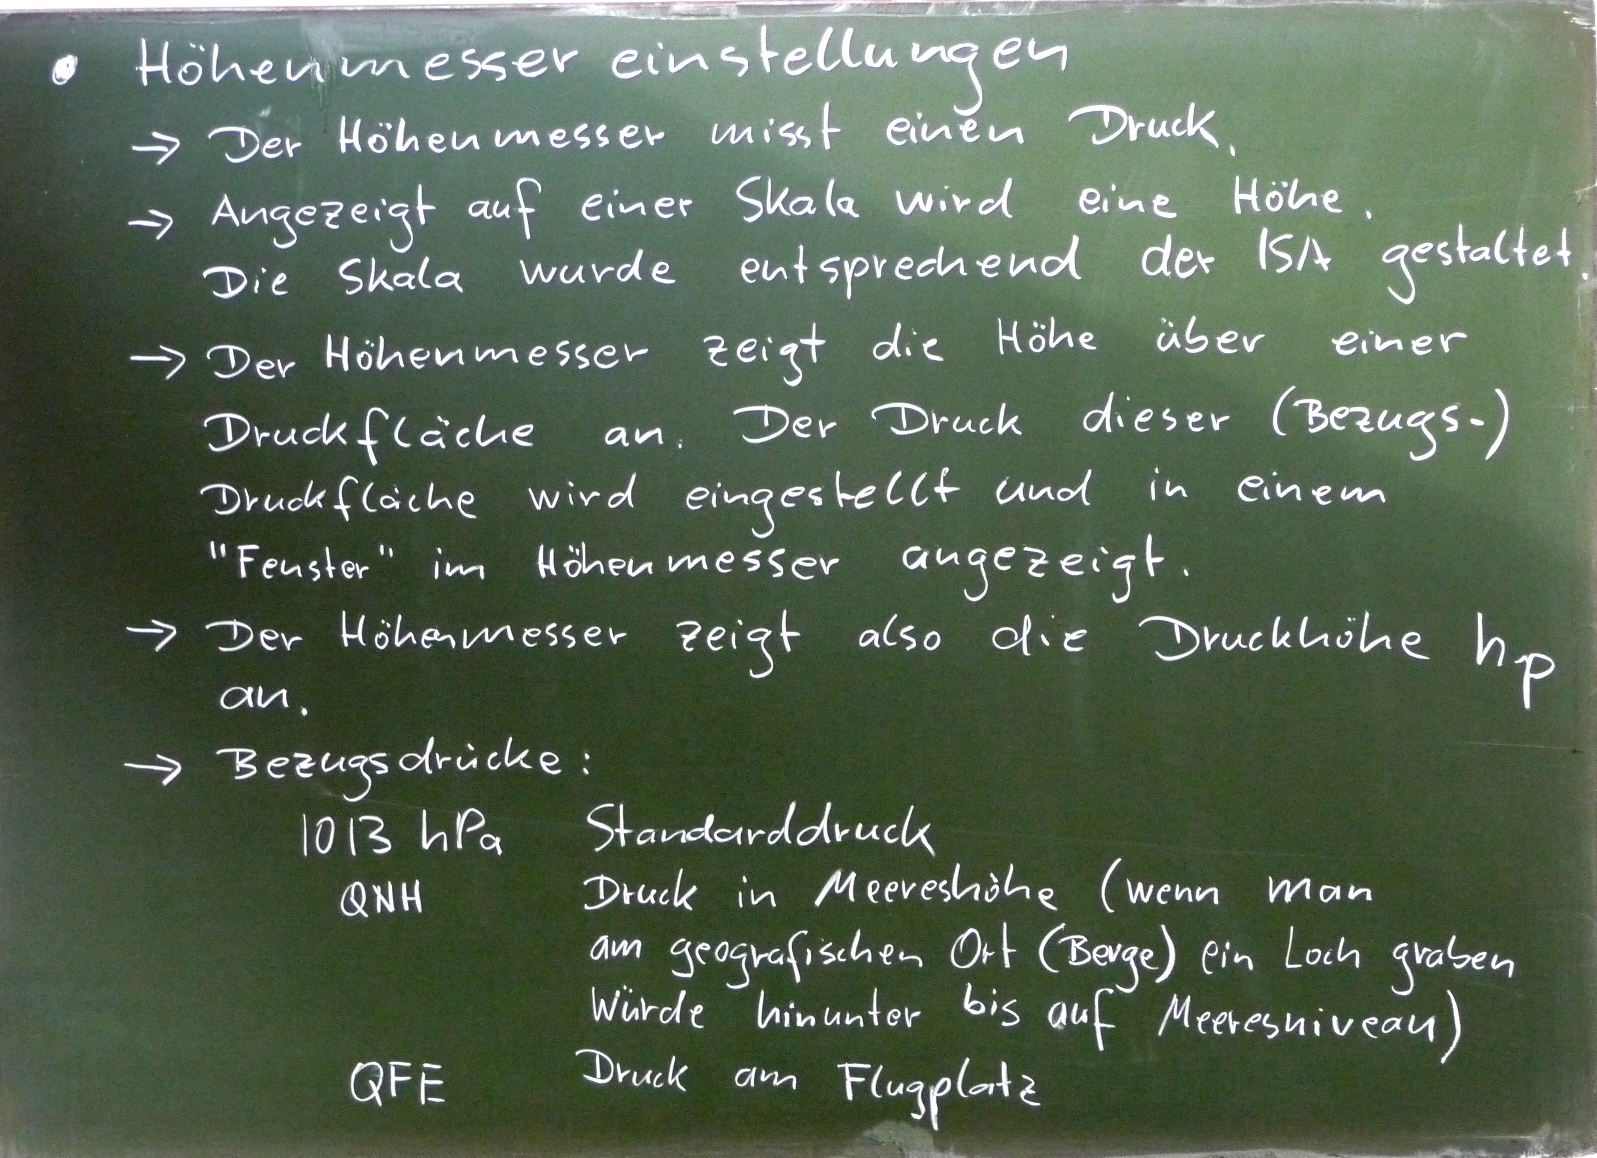 • Höhenmessereinstellungen
→ Der Höhenmesser misst einen Druck.
→ Angezeigt auf einer Skala wird eine Höhe.
Die Skala wurde entsprechend der ISA gestaltet.
→ Der Höhenmesser zeigt die Höhe über einer
Druckfläche an. Der Druck dieser (Bezugs-)
Druckfläche wird eingestellt und in einem
"Fenster" im Höhenmesser angezeigt.
→ Der Höhenmesser zeigt also die Druckhöhe hp
an.
→ Bezugsdrücke:
1013 hPa Standarddruck
QNH Druck in Meereshöhe (wenn man
am geografischen Ort (Berge) ein Loch graben
würde hinunter bis auf Meeresniveau)
QFE Druck am Flugplatz